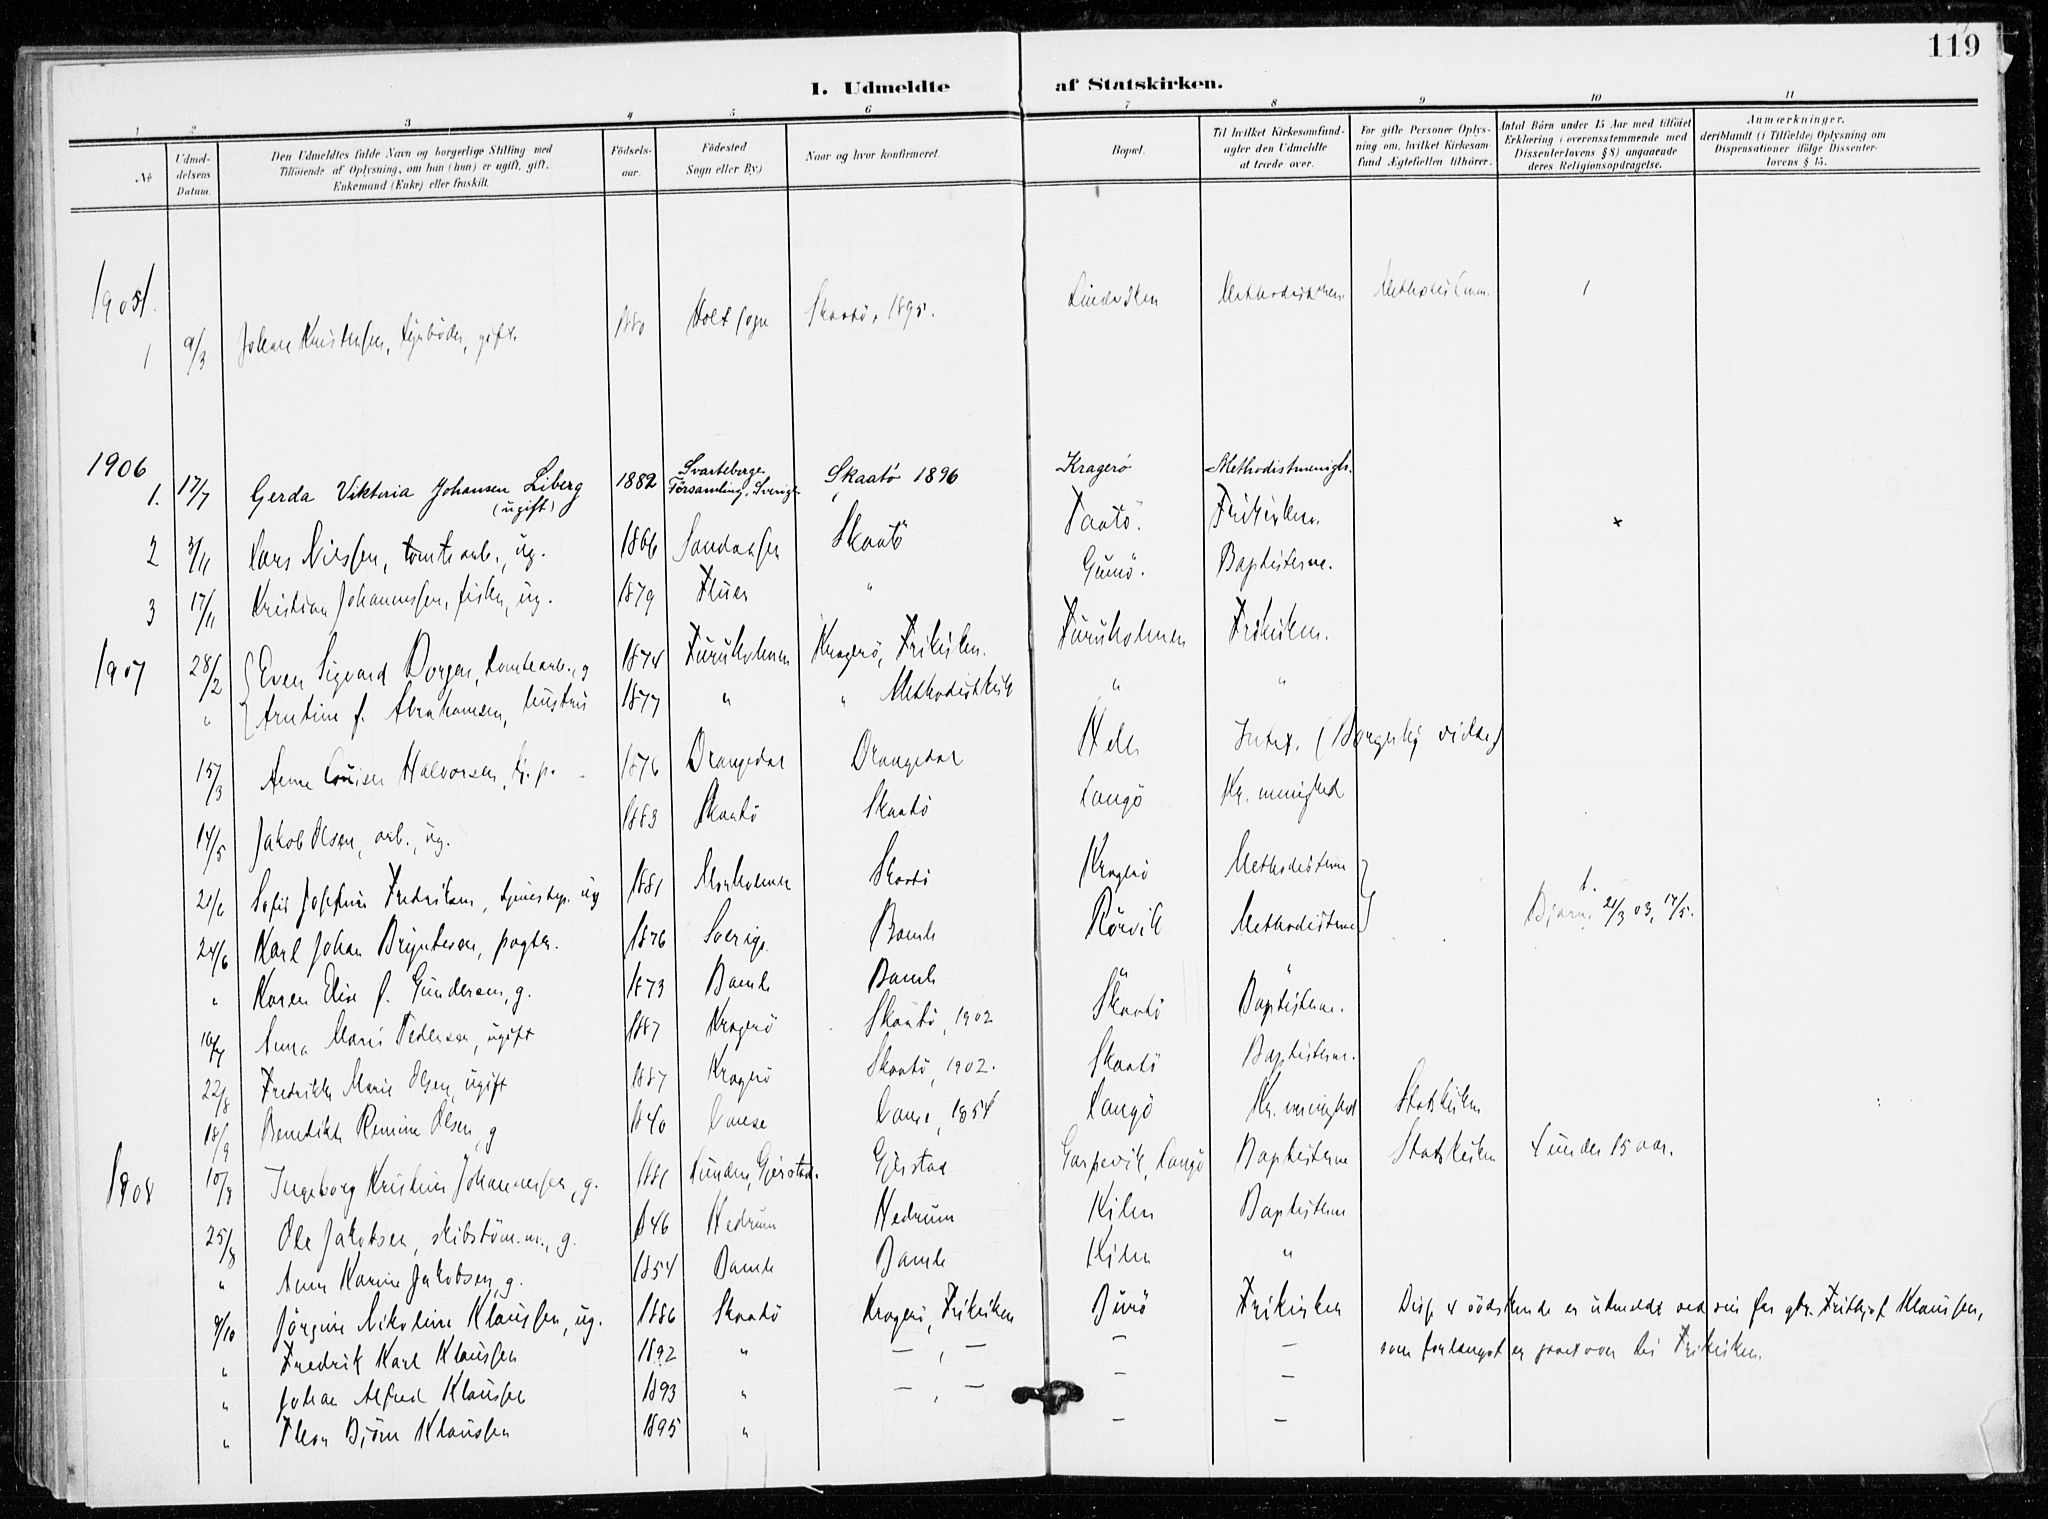 119
I. Udmeldte af Statskirken.
1 2 3 4 5 6 7 8 9 10 11
No
Udmel-
delsens
Datum.
Den Udmeldtes fulde Navn og borgerlige Stilling med
Tilföiende af Oplysning, om han (hun) er ugift, gift,
Enkemand (Enke) eller fraskilt.
Födsels-
aar.
Födested
Sogn eller By.)
Naar og hvor konfirmeret.
Bopæl.
Til hvilket Kirkesamfund-
agter den Udmeldte
at træde over.
For gifte Personer Oplys-
ning om, hvilket Kirkesam-
fund Ægtefællen tilhörer.
Antal Börn under 15 Aar med tilföiet
Erklæring (overensstemmende med
Dissenterlovens § 8) angaaende
deres Religionsopdragelse.
Anmærkninger,
deriblandt (i Tilfælde) Oplysning om
Dispensationer ifölge Dissenter-
lovens § 15.
1905
1 9/3 Johan Kristensen, gift. 1880 Holt sogn Skaatö, 1895. 1
1906
1. 17/7 Gerda Viktoria Johansen Liberg (ugift) 1882 Svarteborgs Församling, Sverige Skaatö 1896 Kragerö Methodistmenigh.
2 3/11 Lars Nilssen, tomtearb., ug. 1866 Skaatö Taatö. Frikirken. x
3 17/11 Kristian Johannessen, fisker, ug. 1879 " Gumö. Baptisterne.
1907 28/2 Even Sigvard Dorgen, tomtearb., g 1874 Furuholmen Kragerö, Frikirken. Furuholmen Frikirken.
" Arntine f. Abrahamsen, hustru 1877 " " Methodistkirk " "
15/3 Anna Louise Halvorsen 1876 Drangedal Drangedal Helle (Borgerlig vidse)
14/5 Jakob Olsen, arb., ug. 1883 Skaatö Skaatö Langö Kr. menighed
21/6 Sofie Josefine Fredriksen, ug 1881 Skaatö Kragerö Methodisterne
24/6 Karl Johan Bryntesen, 1876 Sverige Bamle Rörvik Methodisterne 1. Bjarne 21/3 03, 17/5.
" Karen Elise f. Gundersen, g. 1873 Bamle Bamle " "
16/7 Anna Marie Pedersen, ugift 1887 Kragerö Skaatö, 1902 Skaatö Baptisterne.
22/8 Fredrikke Marie Olsen, ugift 1887 Kragerö Skaatö, 1902. Skaatö Baptisterne.
18/9 Benedikte Olsen, g 1840 1854 Langö Kr. menighed Statskirken
1908 10/8 Ingeborg Kristine Johannessen, g. 1881 Gjerstad. Gjerstad Langö Baptisterne Statskirken 4 under 15 aar.
25/8 Ole Jakobsen, skibstöm.m., g. 1846 Hedrum Hedrum Kilen Baptisterne
" Anna Karine Jakobsen, g. 1854 Bamle Bamle Kilen "
9/10 Jörgine Nikoline Klaussen, ug. 1886 Skaatö Kragerö, Frikirken Burö Frikirken Disse 4 södskende er udmeldt ved sin far gbr. Frithjof Klaussen,
" Fredrik Karl Klaussen 1892 " — , — — — som forlængst er gaaet over til Frikirken.
" Johan Alfred Klaussen 1893 " — , — — —
" Bjørn Klaussen 1895 " — —